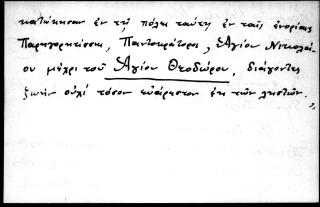 κατώκησαν ἐν τῇ πόλει ταύτῃ ἐν ταῖς ἐνορίαις
Παρηγορητίσσης, Παντοκράτορος, Ἁγίου Νικολά-
ου μέχρι τοῦ Ἁγίου Θεοδώρου, διάγοντες
ζωὴν οὐχὶ τόσον εὐάρεστον ἐκ τῶν λῃστῶν.